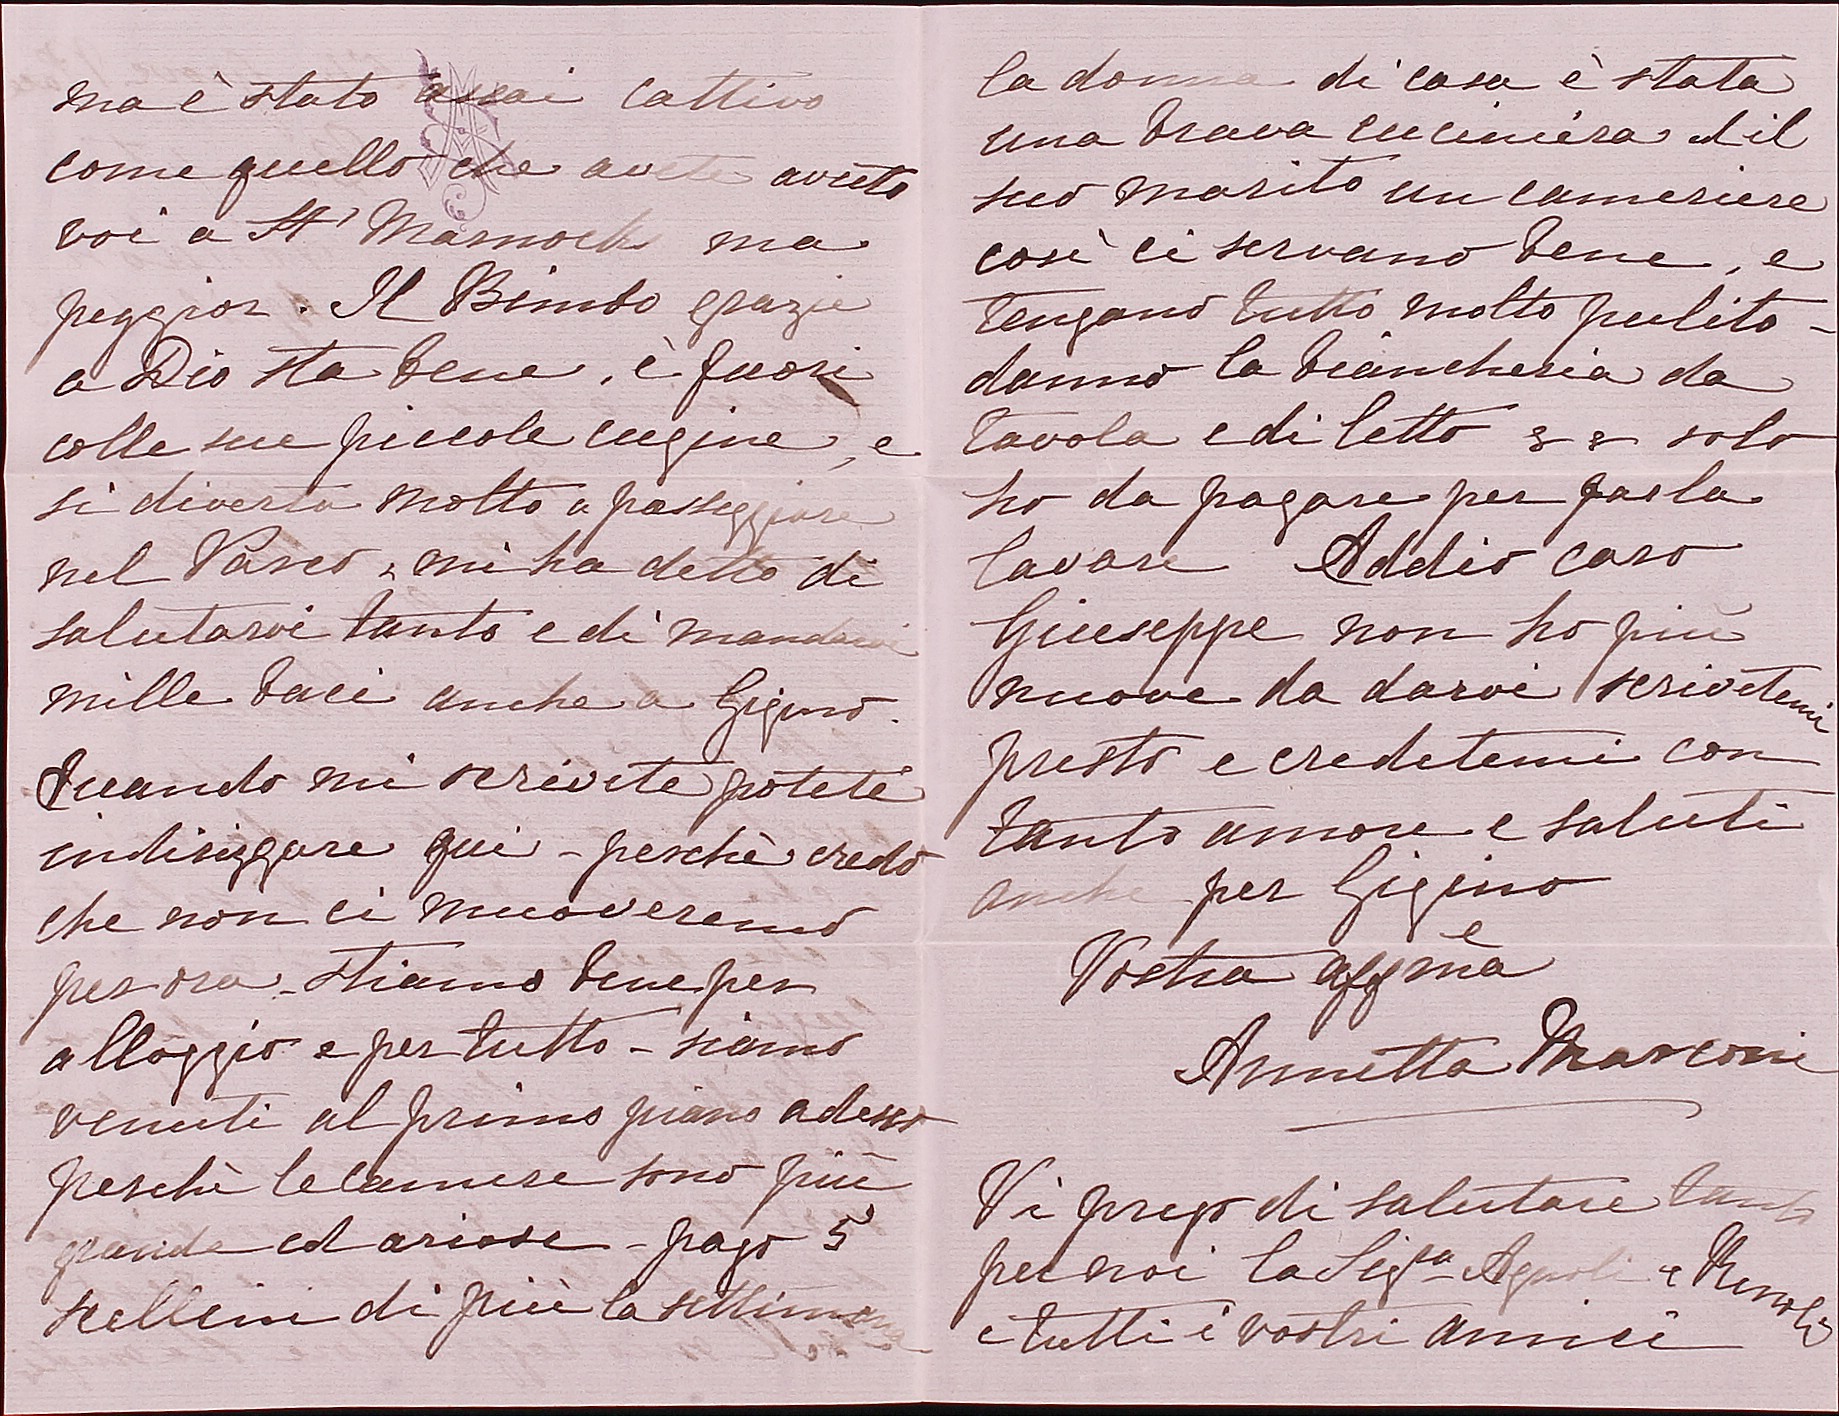 ma è stato assai cattivo
come quello che avete avuto
voi a St Marnock ma
peggior. Il Bimbo grazie
a Dio sta bene, è fuori
colle sue piccole cugine, e
si diverta molto a passeggiare
nel Parco, mi ha detto di
salutarvi tanto e di mandarvi
mille baci anche a Gigino.
Quando mi scrivete potete
indirizzare qui - perchè credo
che non ci muoveremo
per ora - stiamo bene per
alloggio e per tutto - siamo
venuti al primo piano adesso
perchè le camere sono più
grande ed ariose - pago 5
scellini di più la settimana
la donna di casa è stata
una brava cuciniera ed il
suo marito un cameriere
così ci servano bene, e
tengano tutto molto pulito -
danno la biancheria da
tavola e di letto & & solo
ho da pagare per farla
lavare Addio caro
Giuseppe non ho più
nuove da darvi scrivetemi
presto e credetemi con
tanto amore e saluti
anche per Gigino
Vostra affma
Annetta Marconi
Vi prego di salutare tanto
per noi la Sigra Agnoli e
e tutti i vostri amici